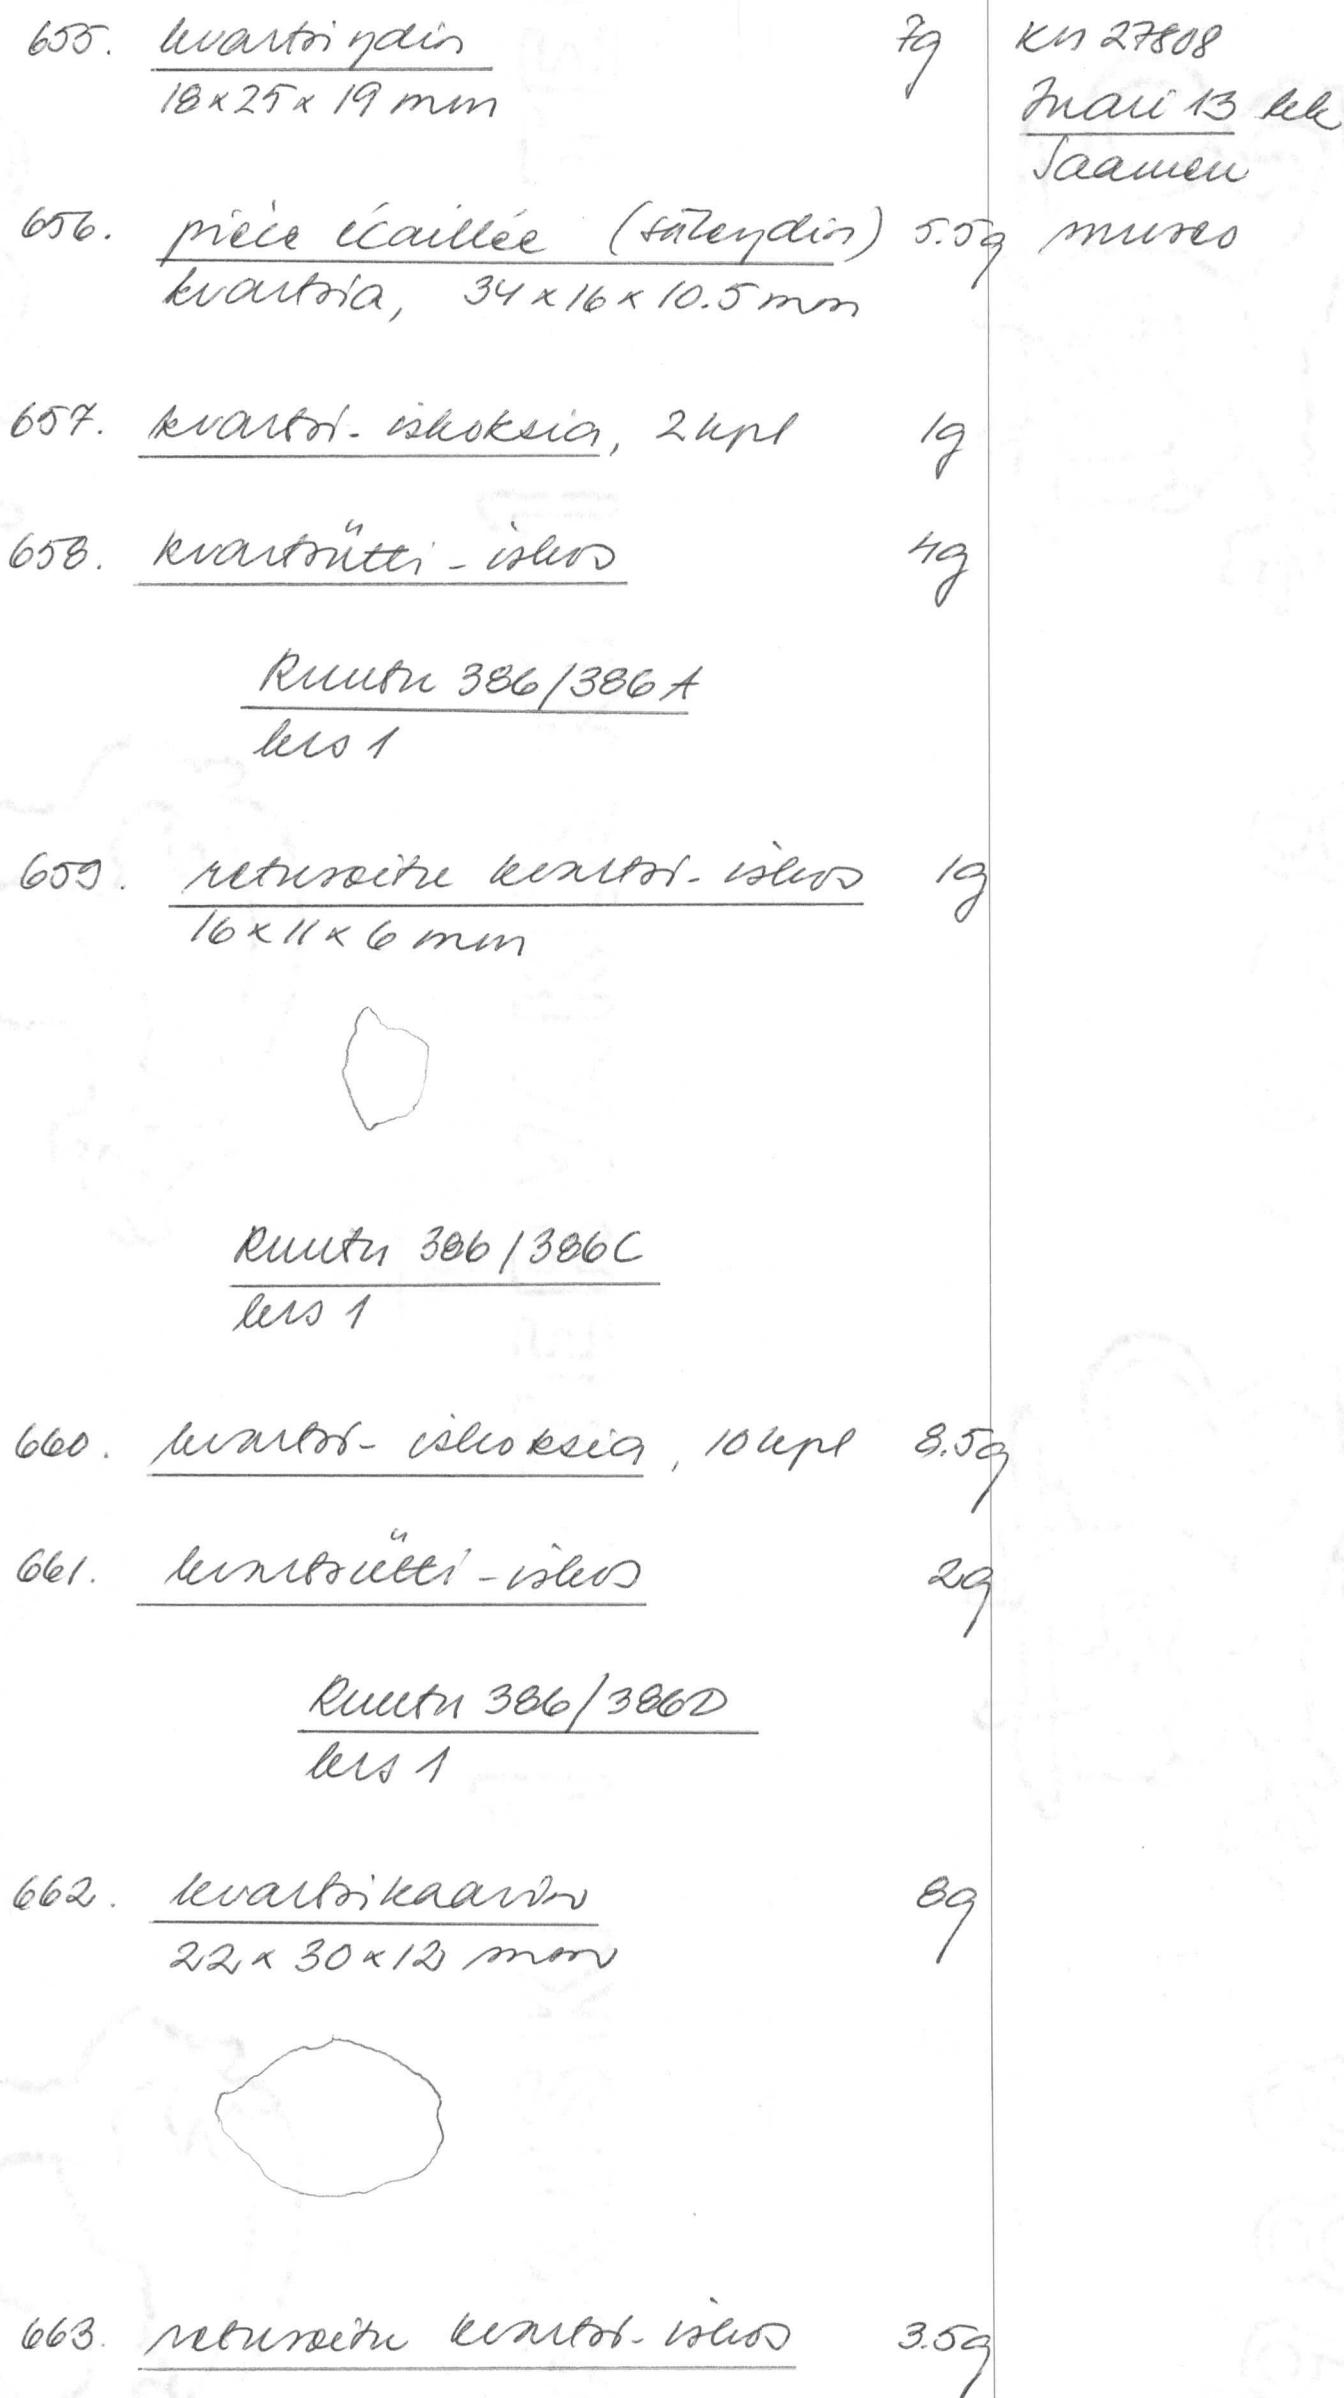 655. kvartsiydin 7g KM 27808
18 x 25 x 19 mm Inari 13 kk
Saamen
656. pièce écaillée (säleydin) 5.5g museo
kvartsia, 34 x 16 x 10.5 mm
657. kvartsi-iskoksia, 2 kpl 1g
658. kvartsiitti-iskos 4g
Ruutu 386/386A
krs 1
659. retusoitu kvartsi-iskos 1g
16 x 11 x 6 mm
Ruutu 386/386C
krs 1
660. kvartsi-iskoksia, 10 kpl 8.5g
661. kvartsiitti-iskos 2g
Ruutu 386/386D
krs 1
662. kvartsikaavin 8g
22 x 30 x 12 mm
663. retusoitu kvartsi-iskos 3.5g